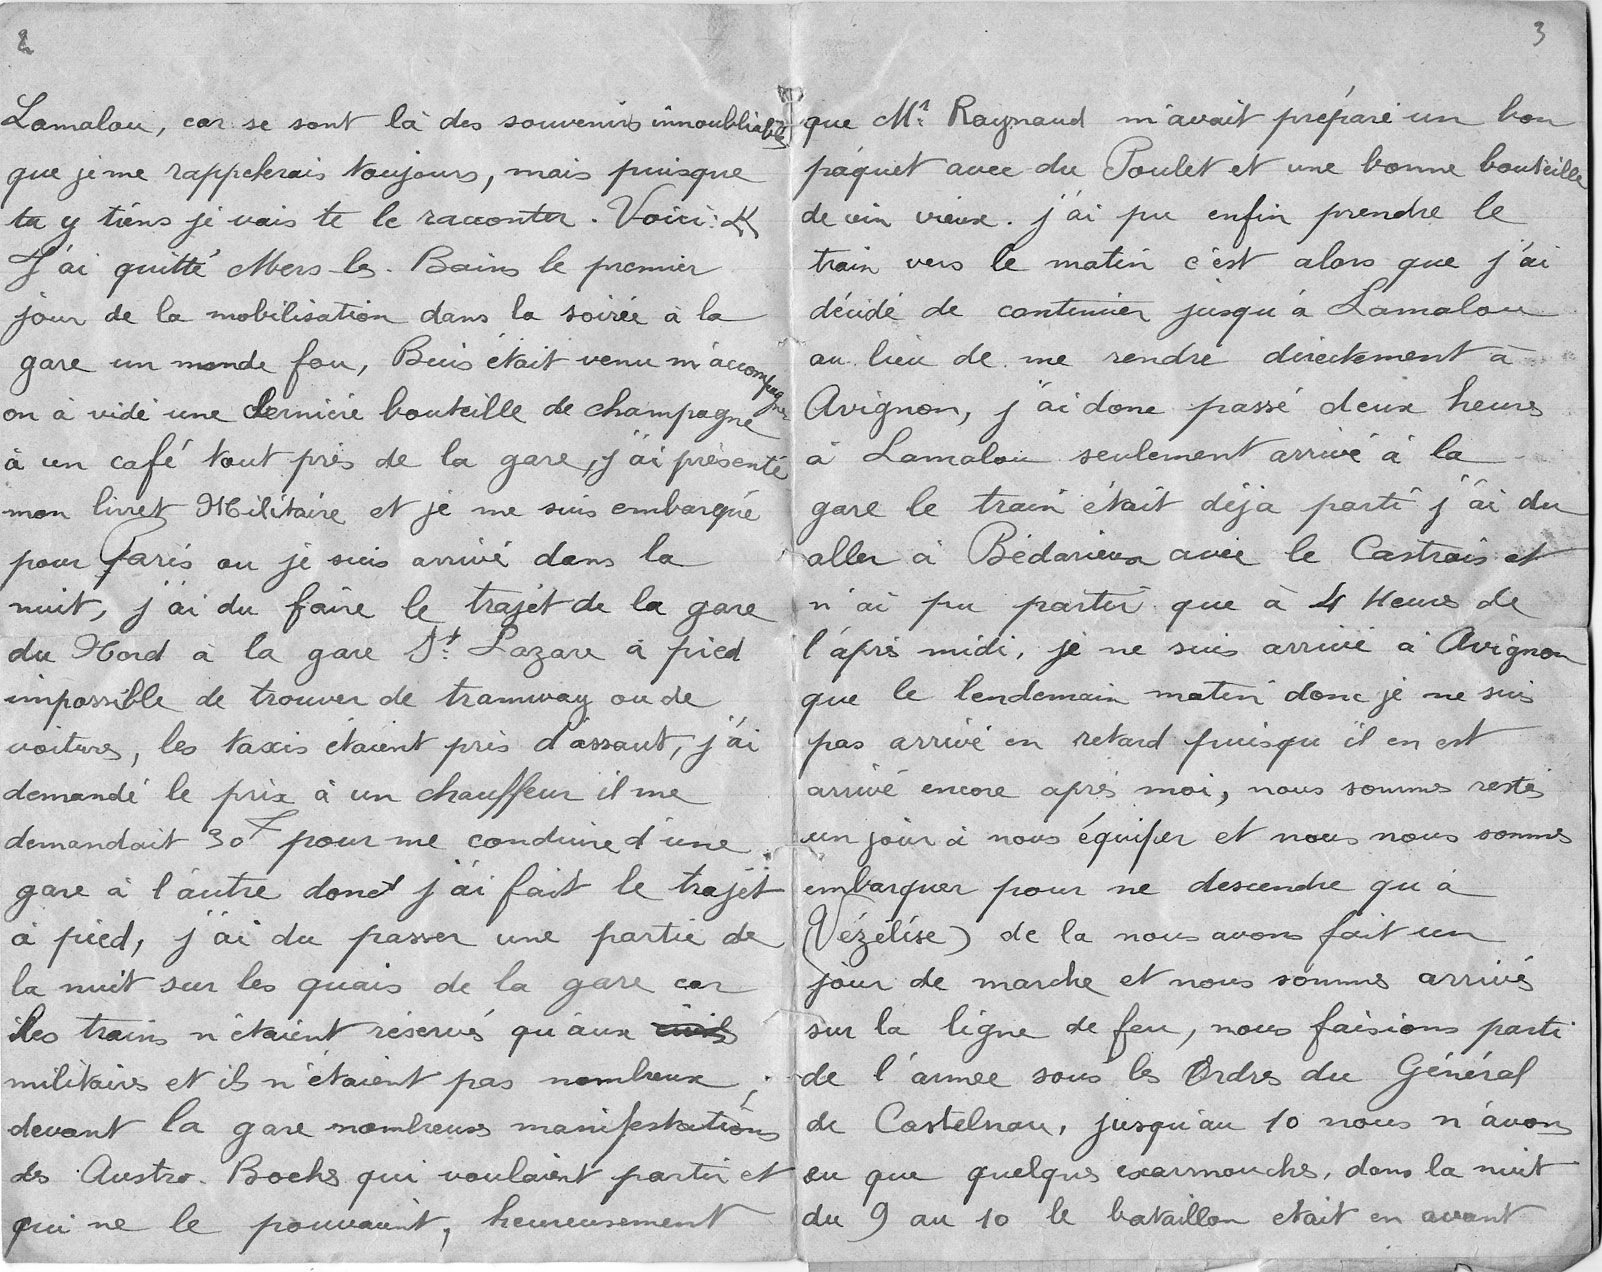 2
Lamalou, car se sont là des souvenirs innoubliables
que je me rappelerais toujours, mais puisque
tu y tiens je vais te le raconter. Voici:
J'ai quitté Mers-les-Bains le premier
jour de la mobilisation dans la soirée à la
gare un monde fou, Buis était venu m'accompagner
on à vidé une dernière bouteille de champagne
à un café tout près de la gare, j'ai présenté
mon livret Militaire et je me suis embarqué
pour Paris ou je suis arrivé dans la
nuit, j'ai du faire le trajet de la gare
du Nord à la gare St. Lazare à pied
impossible de trouver de tramway ou de
voitures, les taxis étaient pris d'assaut, j'ai
demandé le prix à un chauffeur il me
demandait 30f pour me conduire d'une
gare à l'autre donc j'ai fait le trajet
à pied, j'ai du passer une partie de
la nuit sur les quais de la gare car
les trains n'étaient réservés qu'aux civils
militaires et ils n'étaient pas nombreux,
devant la gare nombreuses manifestations
des Austro-Boches qui voulaient partir et
qui ne le pouvaient, heureusement
3
que Mr. Raynaud m'avait préparé un bon
paquet avec du Poulet et une bonne bouteille
de vin vieux. j'ai pu enfin prendre le
train vers le matin c'est alors que j'ai
décidé de continuer jusqu'à Lamalou
au lieu de me rendre directement à
Avignon, j'ai donc passé deux heures
à Lamalou seulement arrivé à la
gare le train était déja parti j'ai du
aller à Bédarieux avec le Castrais et
n'ai pu partir que à 4 Heures de
l'après midi, je ne suis arrivé à Avignon
que le lendemain matin donc je ne suis
pas arrivé en retard puisqu'il en est
arrivé encore après moi, nous sommes restés
un jour à nous équiper et nous nous sommes
embarquer pour ne descendre qu'à
(Vézelise) de la nous avons fait un
jour de marche et nous sommes arrivés
sur la ligne de feu, nous faisions parti
de l'armée sous les Ordres du Général
de Castelnau, jusqu'au 10 nous n'avons
eu que quelques exarmouches, dans la nuit
du 9 au 10 le bataillon etait en avant